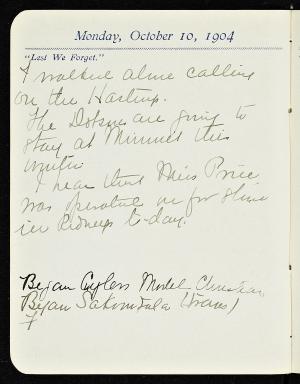 Monday, October 10, 1904
"Lest We Forget."
I walked alone calling
on the Hartings.
The Dobsons are going to
stay at Minnet this
winter.
I hear that Miss Price
was operated on for stone
in kidneys to-day.
Began Model Christian
Began Sakuntala (trans)